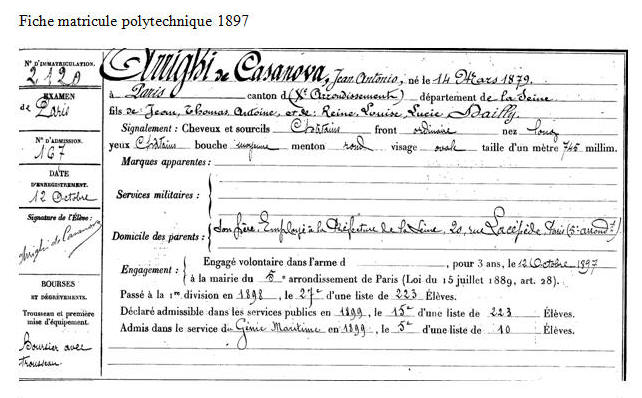 Fiche matricule polytechnique 1897
N° D'IMMATRICULATION.
2120
EXAMEN
de Paris
N° D'ADMISSION.
167
DATE
D'ENREGISTREMENT.
12 Octobre
Signature de l'Élève :
Arrighi de Casanova
BOURSES
ET DÉGRÈVEMENTS.
Trousseau et première
mise d'équipement.
Boursier avec
trousseau.
Arrighi de Casanova, Jean Antonio, né le 14 Mars 1879.
à Paris canton d (Xe Arrondissement) département de la Seine
fils de Jean, Thomas Antoine, et de Reine, Louise, Lucie, Bailly.
Signalement : Cheveux et sourcils Châtains front ordinaire nez long
yeux Châtains bouche moyenne menton rond visage ovale taille d'un mètre 745 millim.
Marques apparentes :
Services militaires :
Domicile des parents : Son frère, Employé à la Préfecture de la Seine, 20, rue Lacépède Paris (5e arrondt.)
Engagement : Engagé volontaire dans l'arme d , pour 3 ans, le 12 Octobre 1897
à la mairie du 5e arrondissement de Paris (Loi du 15 juillet 1889, art. 28).
Passé à la 1re division en 1898, le 27e d'une liste de 223 Élèves.
Déclaré admissible dans les services publics en 1899, le 15e d'une liste de 223 Élèves.
Admis dans le service du Génie Maritime en 1899, le 5e d'une liste de 10 Élèves.